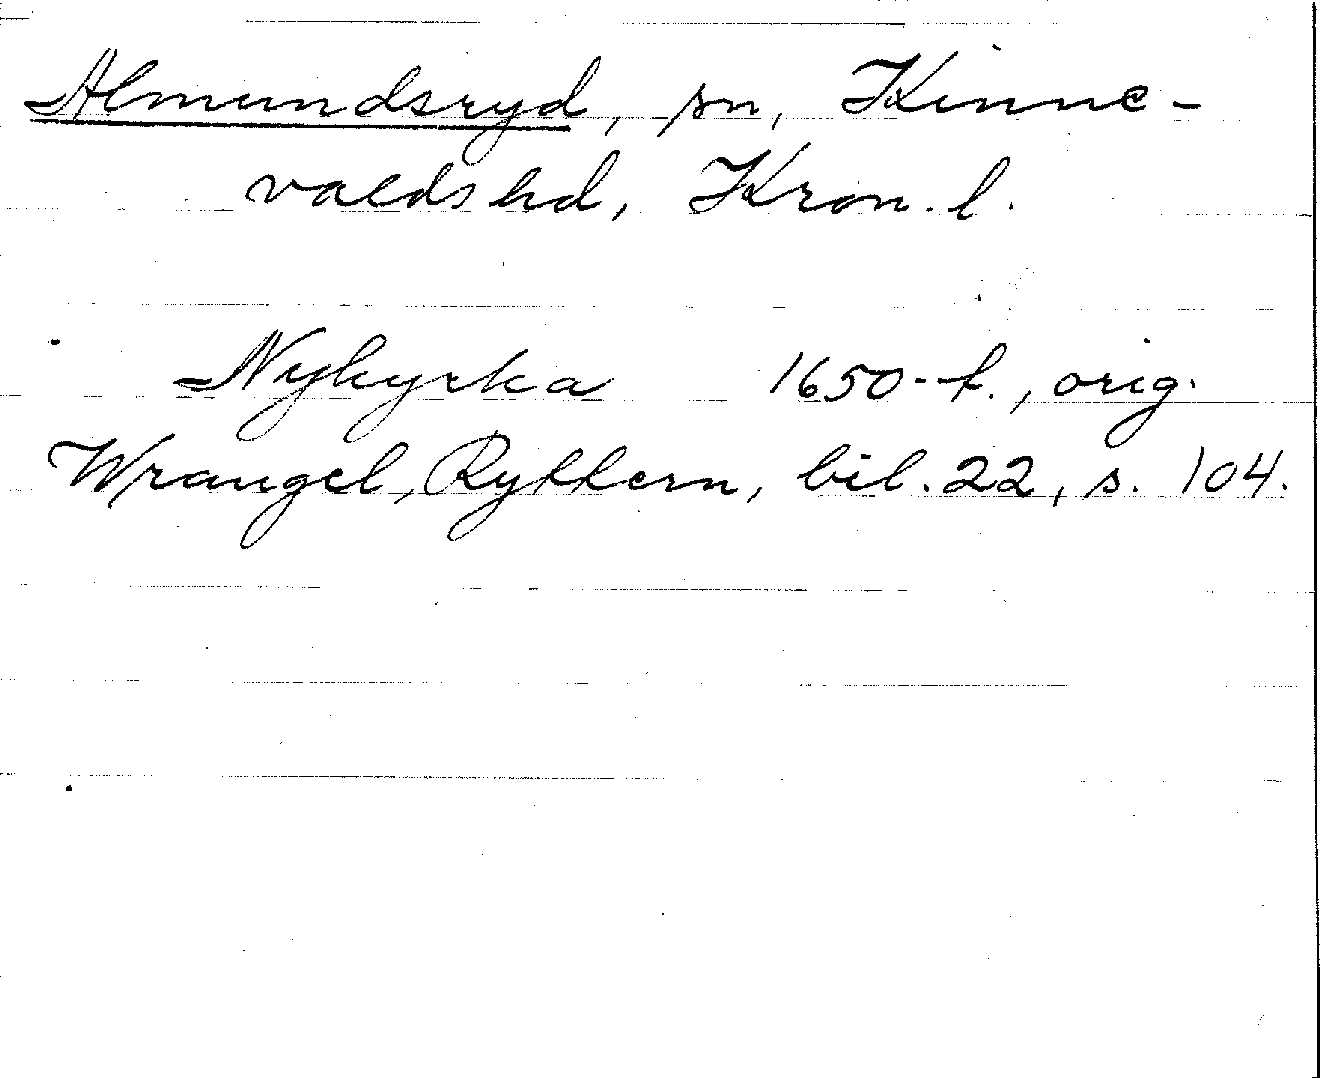 Almundsryd, sn, Kinne-
valdshd, Kron. l.
Nykyrka 1650-t., orig.
Wrangel, Ryttern, bil. 22, s. 104.